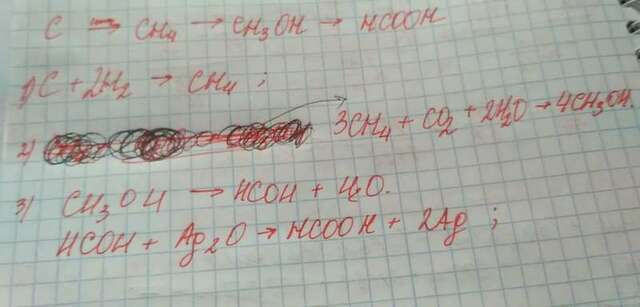 C → CH₄ → CH₃OH → HCOOH
1) C + 2H₂ → CH₄ ;
2) 3CH₄ + CO₂ + 2H₂O → 4CH₃OH
3) CH₃OH → HCOH + H₂O.
HCOH + Ag₂O → HCOOH + 2Ag ;